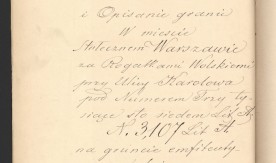 i Opisanie granic
W mieście
Stołecznem Warszawie
za Rogatkami Wolskiemi
przy Ulicy Karolowa
pod Numerem Trzy ty-
siące sto siedem Lit. H.
N. 3,107 Lit H
na gruncie emfiteuty